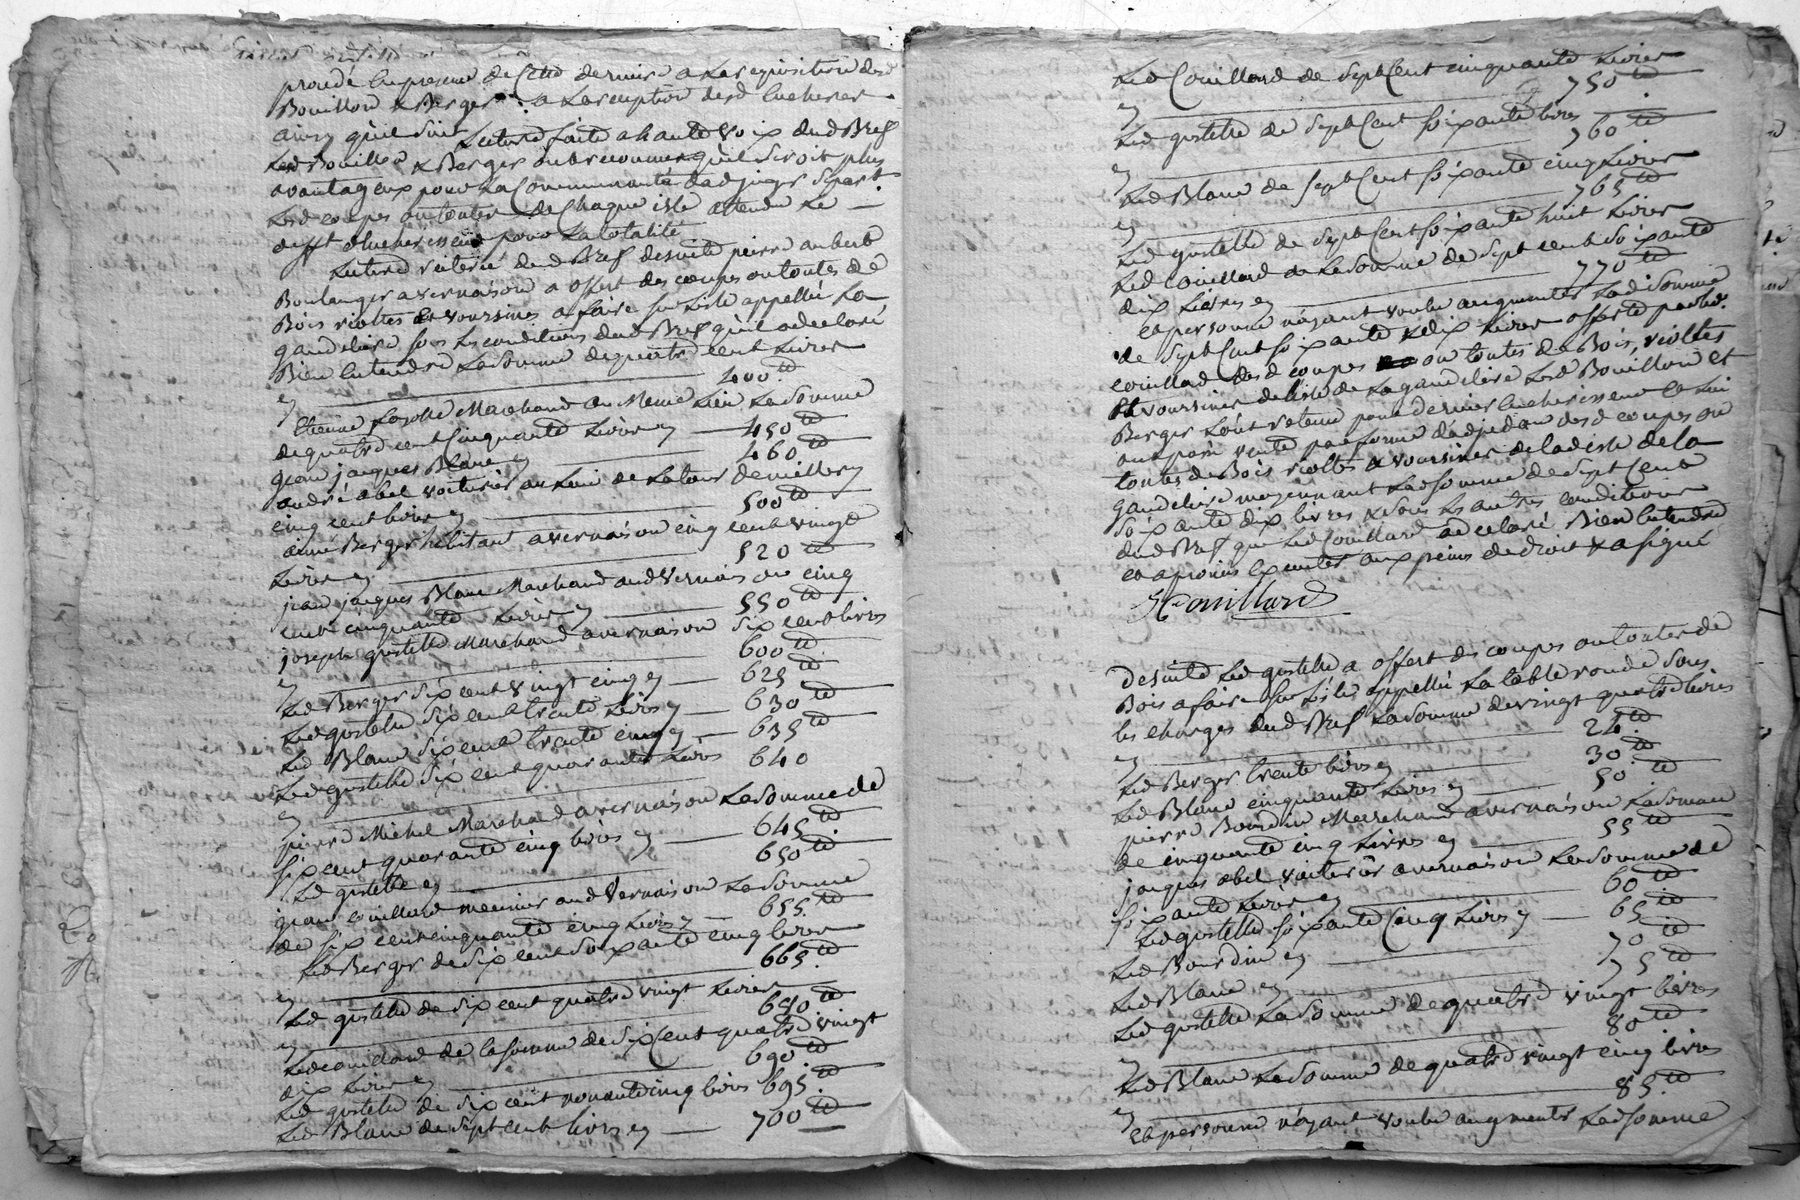 procédé en presence de cette derniere a la requisition desd
Bouillon & Berger a la reception desd encheres
ainsy qu'il suit Lecture faite a haute voix dud Bref
Lesd Bouillon & Berger ont reconnu qu'il seroit plus
avantageux pour la Communauté d'adjuger separt
Lesd coupes ou tontes de chaque isle attendu le
defft d'encherisseur pour la totalité
Lecture reiterée dud Bref desuitte pierre aubert
Boulanger a vernaison a offert des coupes ou tontes de
Bois riottes et voursines a faire sur l'isle appellée La
gandeliere sous les conditions dud Bref qu'il a declaré
Bien entendre La somme de quatre cent Livres
cy 400 tt
Etienne Marchand au Meme Lieu La somme
de quatre cent cinquante Livres cy 450 tt
jean jacques Blanc cy 460 tt
andré abel voiturier au Lieu de La tour de millery
cinq cent livres cy 500 tt
aimé Berger habitant a vernaison cinq cent vingt
Livres cy 520 tt
jean jacques Blanc Marchand aud Vernaison cinq
cent cinquante Livres cy 550 tt
joseph gostelle Marchand a vernaison six cent livres
cy 600 tt
Led Berger six cent vingt cinq cy 625 tt
Led gostelle six cent trente Livres cy 630 tt
Led Blanc six cent trente cinq cy 635 tt
Led gostelle six cent quarante Livres
cy 640
pierre Michel Marchand a vernaison La somme de
six cent quarante cinq livres cy 645 tt
Led gostelle cy 650 tt
jean Couillard meunier aud Vernaison La somme
de six cent cinquante cinq Livres cy 655 tt
Led Berger de six cent soixante cinq livres
cy 665 tt
Led gostelle de six cent quatre vingt Livres
cy tt
Led couillard de la somme de six Cent quatre vingt
dix Livres cy 690 tt
Led gostelle de six cent nonante cinq livres 695 tt
Led Blanc de sept cent livres cy 700 tt
Led Couillard de sept Cent cinquante Livres
cy 750 tt
Led gostelle de sept Cent soixante livres
cy 760 tt
Led Blanc de sept Cent soixante cinq Livres
cy 765 tt
Led gostelle de sept Cent soixante huit Livres
Led Couillard de La somme de sept cent soixante
dix Livres cy 770 tt
et personne n'ayant voulu augmenter Lad somme
de sept Cent soixante & dix Livres offerte par led
couillard desd coupes ou tontes de Bois, riottes
et voursines de l'isle de La gandeliere Lesd Bouillon et
Berger L'ont retenu pour dernier encherisseur et lui
ont passé vente par forme d'adjudaon desd coupes ou
tontes de Bois riottes & voursines de lad isle de la
gandeliere moyennant Lad somme de sept Cent
soixante dix livres & sous les autres conditions
dud Bref que Led Couillard a declaré Bien entendre
et a promis executer aux peines de droit & a signé
J Couillard
desuitte Led gostelle a offert des coupes ou tontes de
Bois a faire sur l'isle appellée La table ronde sous
les charges dud Bref La somme de vingt quatre livres
cy 24 tt
Led Berger trente livres cy 30 tt
Led Blanc cinquante Livres cy 50 tt
pierre Bourdin Marchand a vernaison La somme
de cinquante cinq Livres cy 55 tt
jacques abel voiturier a vernaison La somme de
soixante Livres cy 60 tt
Led gostelle soixante Cinq Livres cy 65 tt
Led Bourdin cy 70 tt
Led Blanc cy 75 tt
Led gostelle La somme de quatre vingt livres
cy 80 tt
Led Blanc La somme de quatre vingt cinq livres
cy 85 tt
et personne n'ayant voulu augmenter Lad somme